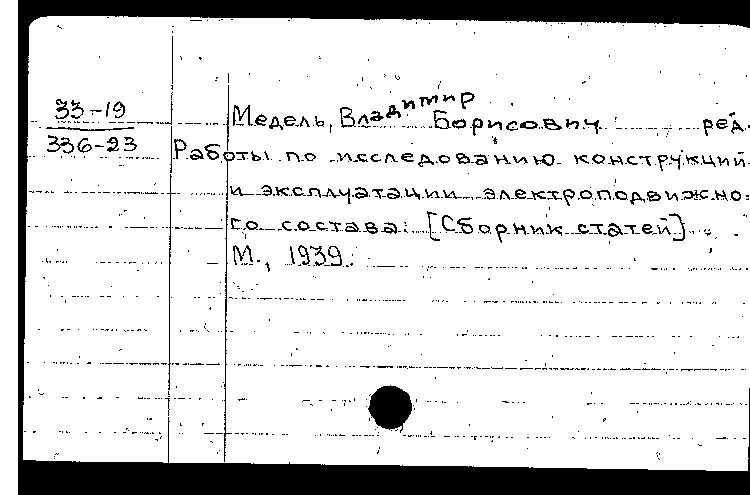 33-19
336-23
Медель, Владимир Борисович ред.
Работы по исследованию конструкций
и эксплуатации электроподвижно-
го состава. [Сборник статей].
М., 1939.